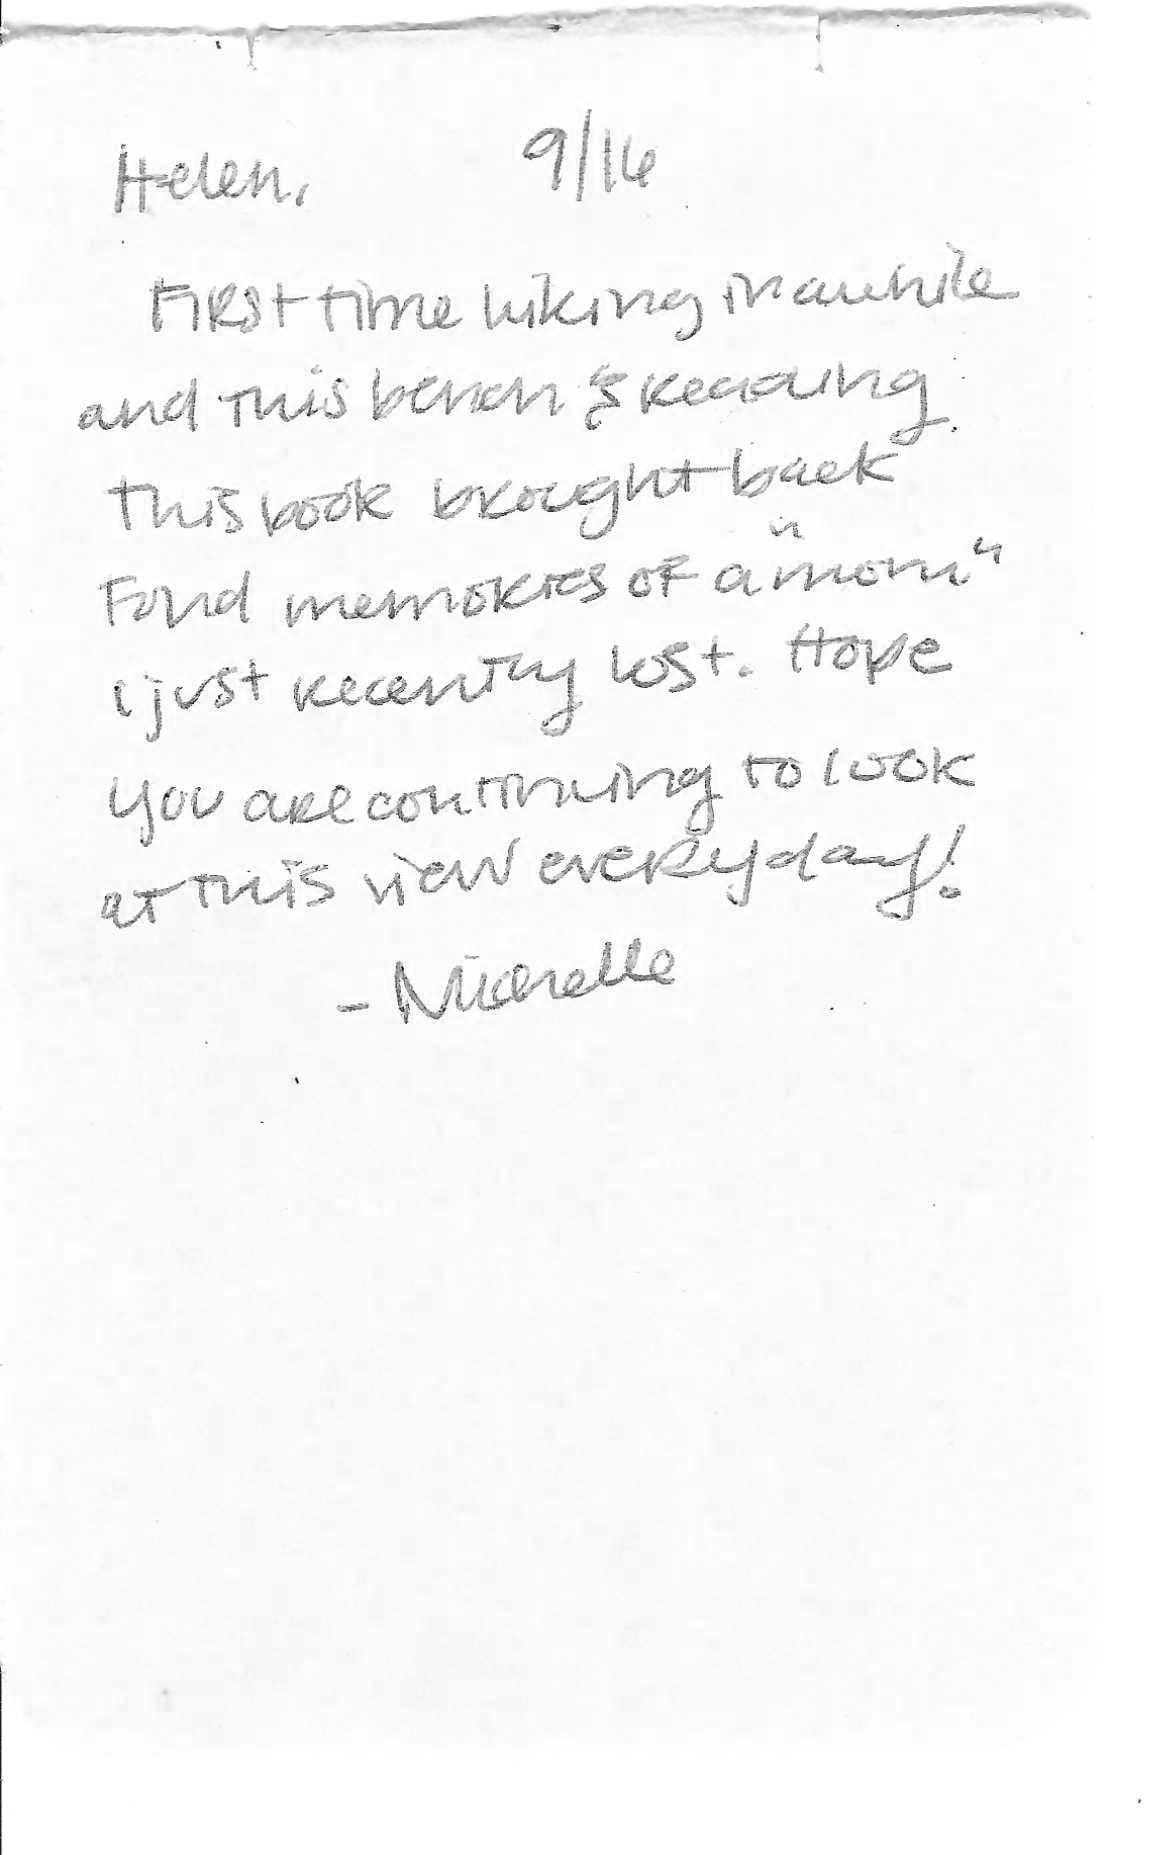 Helen, 9/16
First time hiking in awhile
and this bench & reading
this book brought back
Fond memories of a "mom"
i just recently lost. Hope
you are continuing to look
at this view everyday!
- Michelle